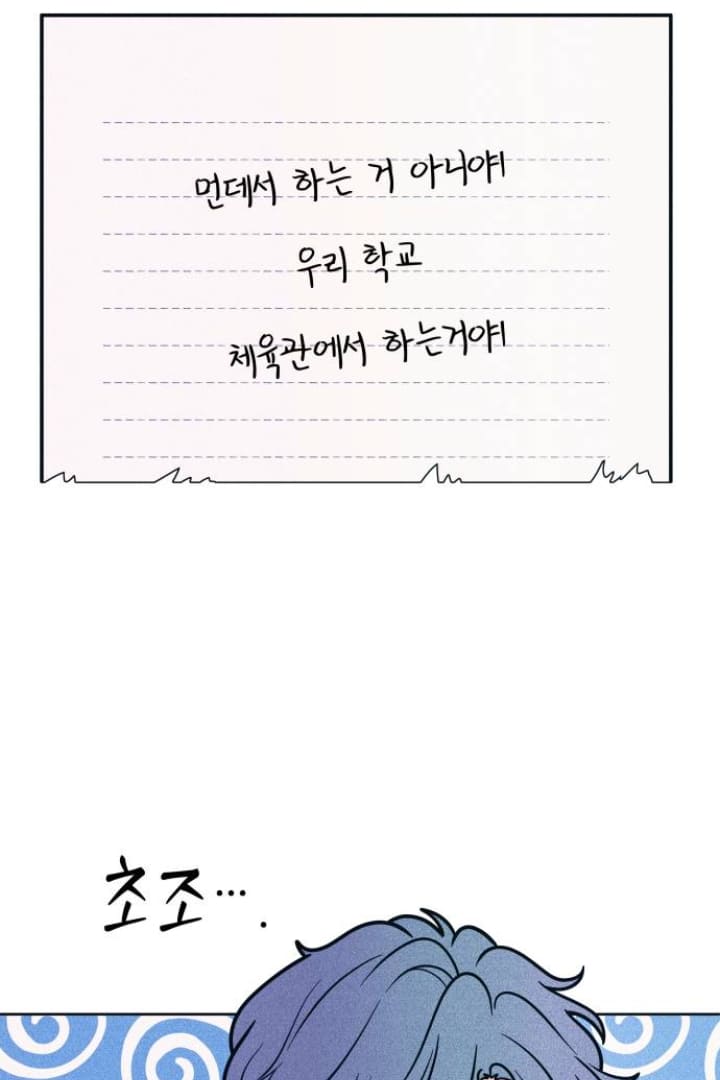 먼데서 하는 거 아니야!
우리 학교
체육관에서 하는거야!
초조....